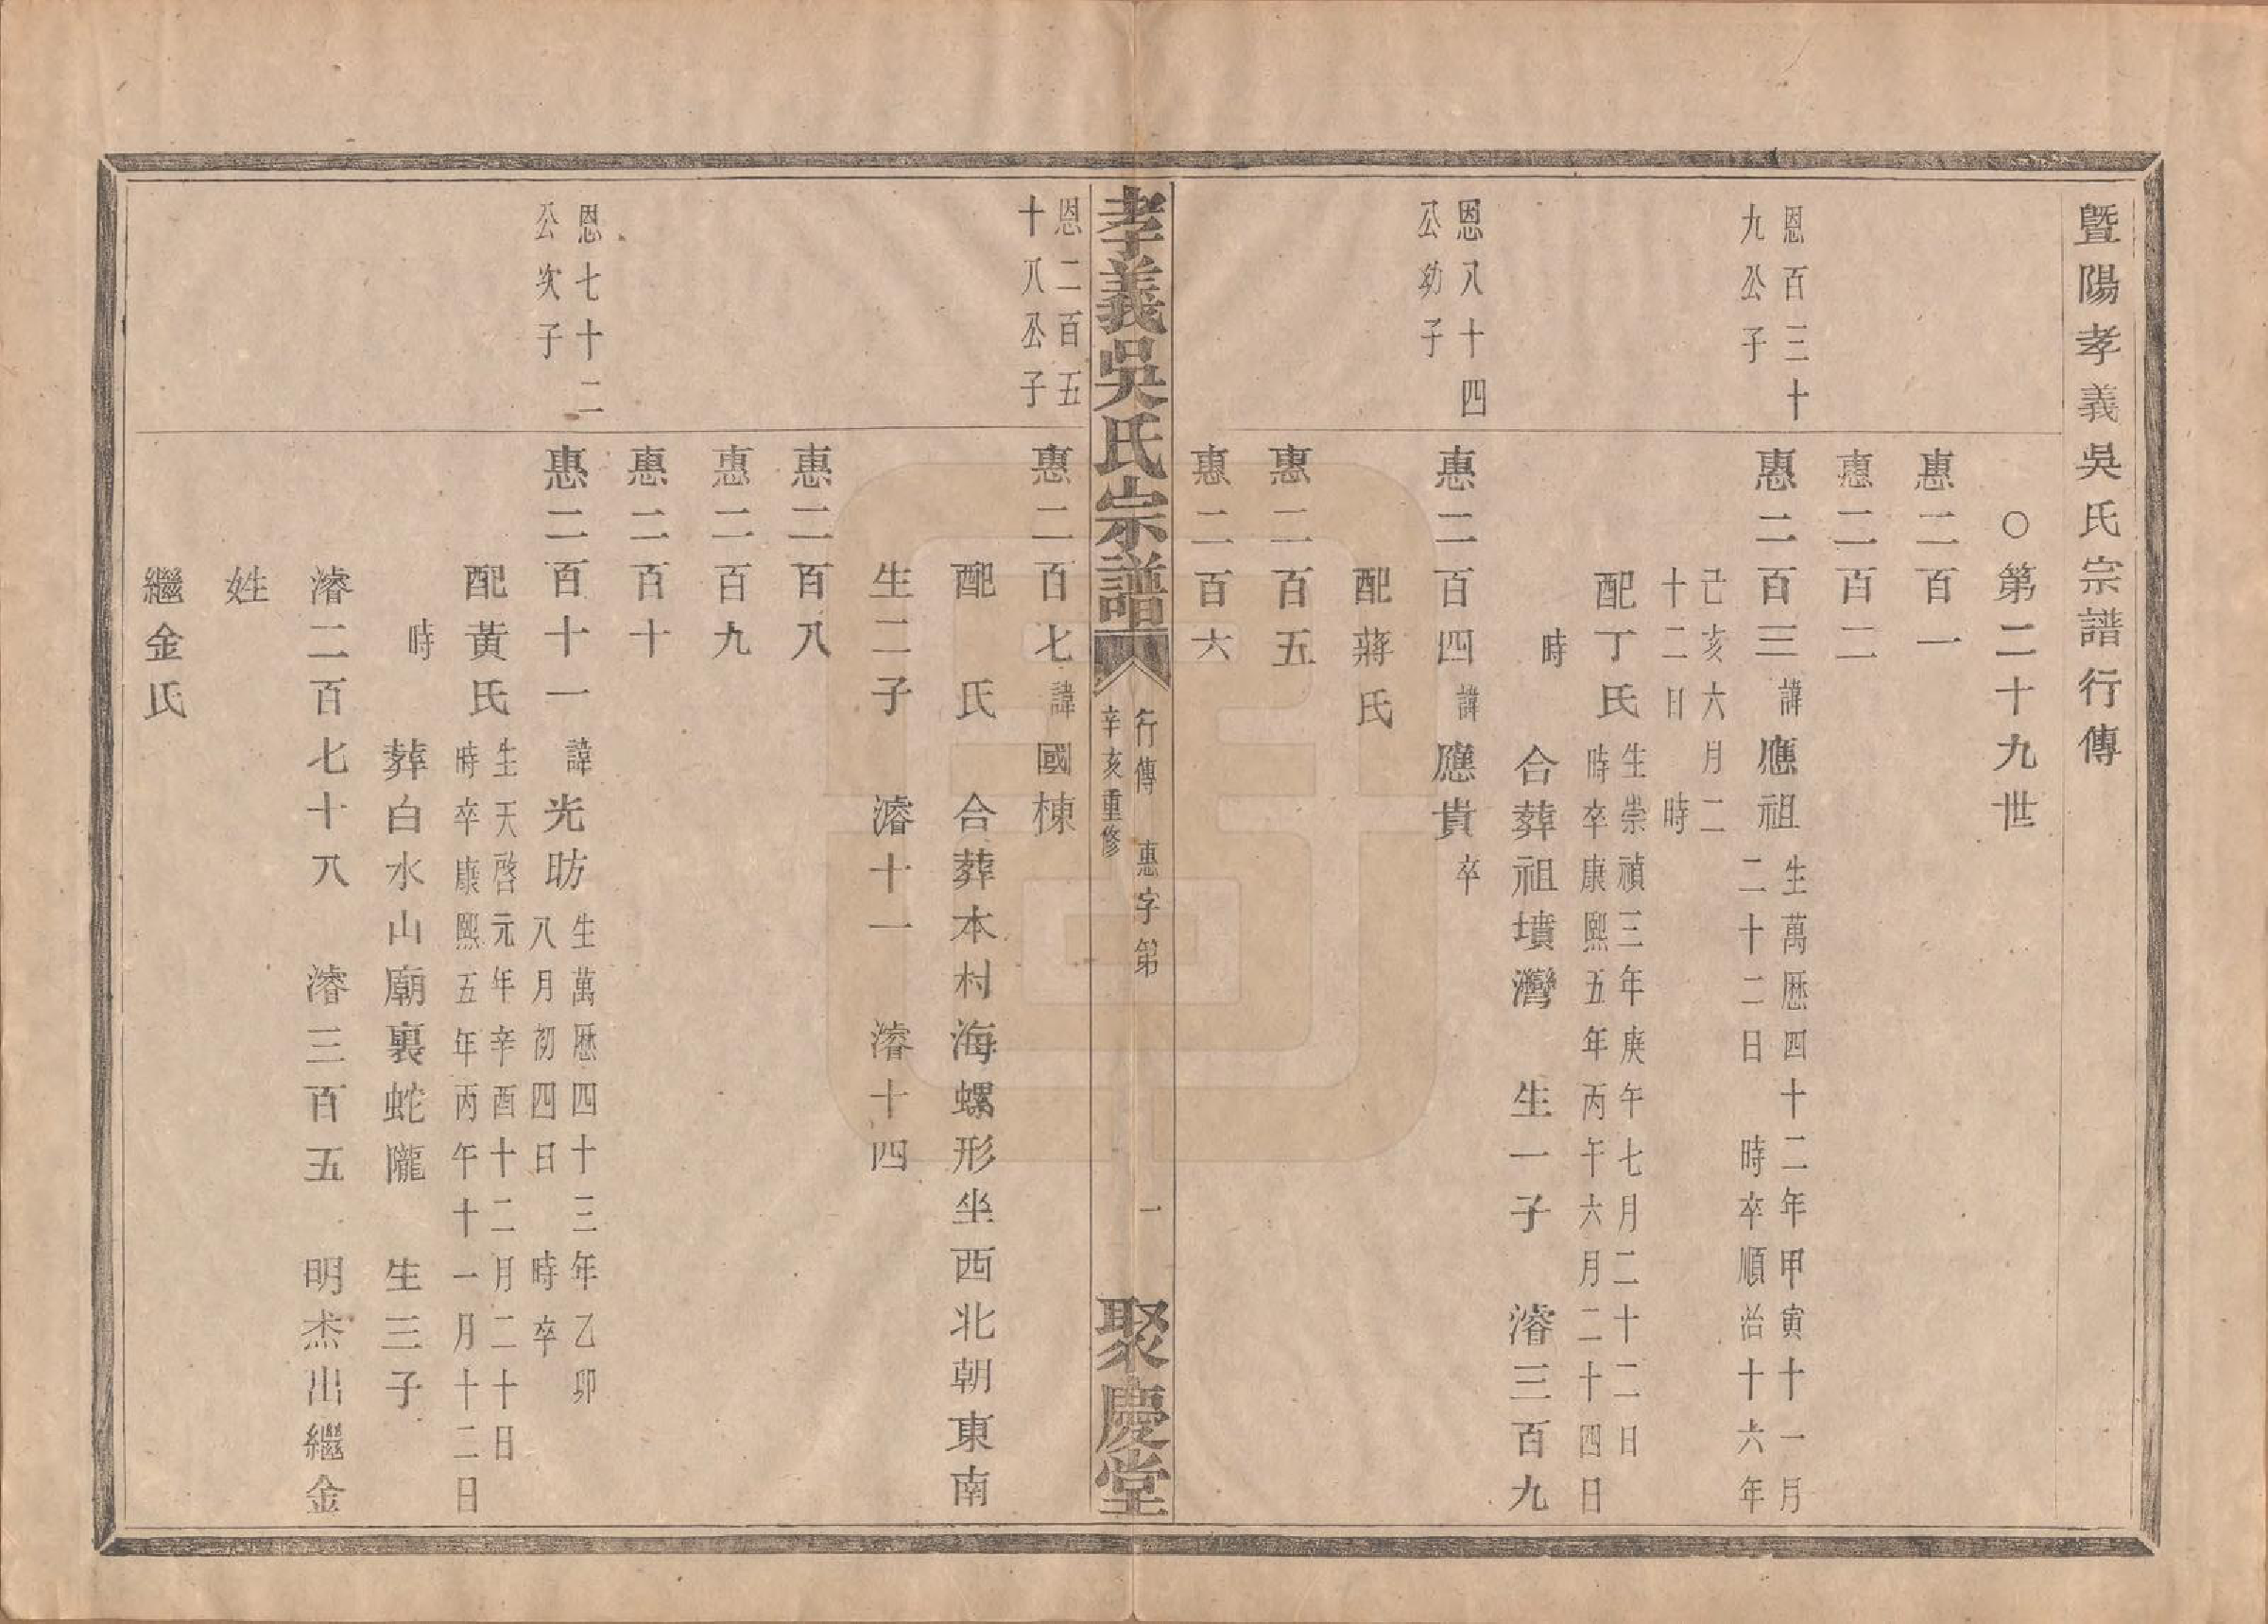 暨陽孝義吳氏宗譜行傳
○第二十九世
惠二百一
惠二百二
恩百三十
九公子
惠二百三諱應祖
生萬歷四十二年甲寅十一月
二十二日　時卒順治十六年
己亥六月二
十二日　時
配丁氏
生崇禎三年庚午七月二十二日
時卒康熙五年丙午六月二十四日
時
合葬祖墳灣　生一子　濬三百九
恩八十四
公幼子
惠二百四諱應貴卒
配蔣氏
惠二百五
惠二百六
孝義吳氏宗譜
行傳　惠字第　一
辛亥重修
聚慶堂
恩二百五
十八公子
惠二百七諱國棟
配　氏　合葬本村海螺形坐西北朝東南
生二子　濬十一　濬十四
惠二百八
惠二百九
惠二百十
恩七十二
公次子
惠二百十一諱光昉
生萬歷四十三年乙卯
八月初四日　時卒
配黃氏
生天啓元年辛酉十二月二十日
時卒康熙五年丙午十一月十二日
時
葬白水山廟裏蛇隴　生三子
濬二百七十八　濬三百五　明杰出繼金
姓
繼金氏